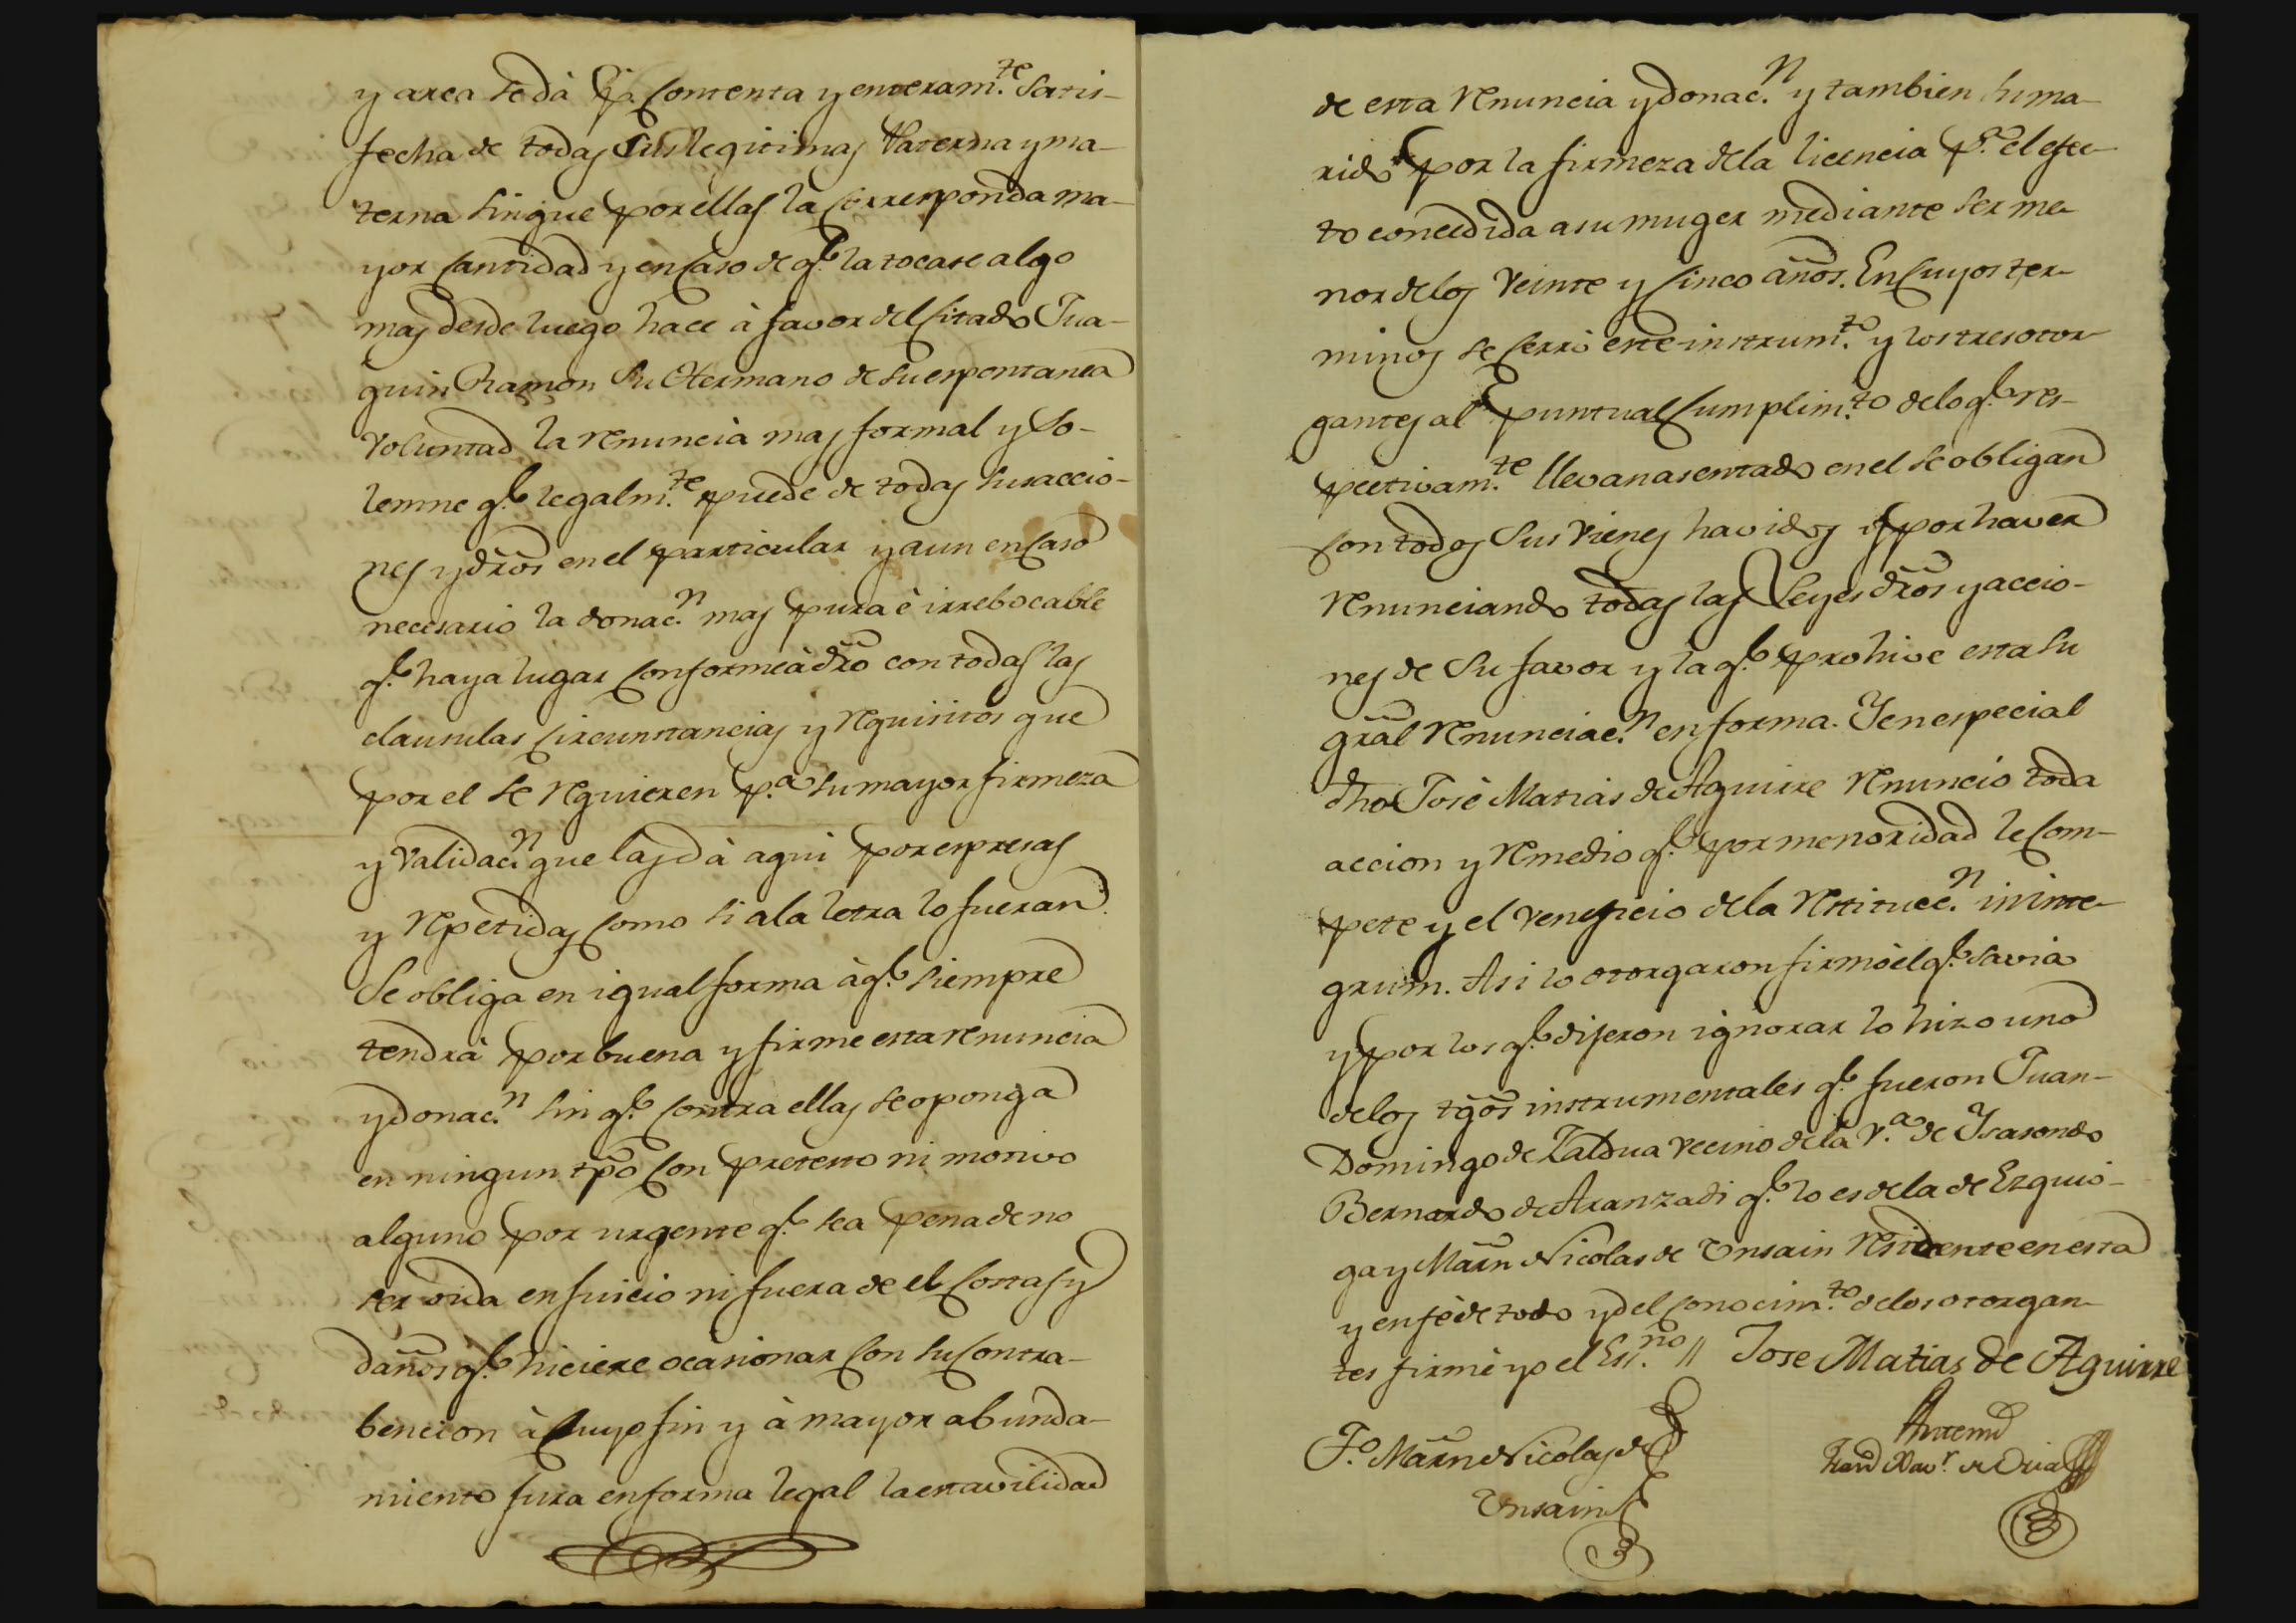 y arca se dà p.r contenta y enteram.te satis-
fecha de todas sus legitimas Paterna y ma-
terna sin que por ellas la corresponda ma-
yor cantidad y en caso de q.e la tocase algo
mas desde luego hace à favor del citado Jua-
quin Ramon su Hermano de su espontanea
voluntad la renuncia mas formal y so-
lemne q.e legalm.te puede de todas sus accio-
nes y dr̃os en el particular y aun en caso
necesario la donac.n mas pura è irrebocable
q.e haya lugar conforme à dr̃o con todas las
clausulas circunstancias y requisitos que
por el se requieren p.a su mayor firmeza
y validac.n que las dà aqui por espresas
y repetidas como si a la letra lo fueran.
Se obliga en igual forma à q.e siempre
tendrà por buena y firme esta renuncia
y donac.n sin q.e contra ellas se oponga
en ningun tp̃o con pretesto ni motivo
alguno por urgente q.e sea pena de no
ser oida en juicio ni fuera de el costas y
daños q.e hiciere ocasionar con su contra-
bencion à cuyo fin y à mayor abunda-
miento jura en forma legal la estavilidad
de esta renuncia y donac.n y tambien su ma-
rido por la firmeza de la licencia p.a el efec-
to concedida a su muger mediante ser me-
nor de los veinte y cinco años. En cuyos ter-
minos se cerrò este instrum.to y los tres otor-
gantes al puntual cumplim.to de lo q.e res-
pectivam.te llevan asentado en el se obligan
con todos sus vienes havidos y por haver
renunciando todas las Leyes dr̃os y accio-
nes de su favor y la q.e prohive esta su
grãl renunciac.n en forma. Y en especial
dho Josè Matias de Aguirre renunciò toda
accion y remedio q.e por menoridad le com-
pete y el veneficio de la restitucc.n in inte-
grum. Asi lo otorgaron firmò el q.e savia
y por los q.e dijeron ignorar lo hizo uno
de los tgõs instrumentales q.e fueron Juan-
Domingo de Zaldua vecino de la V.a de Ysasondo
Bernardo de Aranzadi q.e lo es de la de Ezquio-
ga y Mar̃n Nicolas de Unsain residente en esta
y en fè de todo y del conocim.to de los otorgan-
tes firmè yo el Es.no // Jose Matias de Aguirre
T.o Mar̃n Nicolas de
Unsain
Antemi